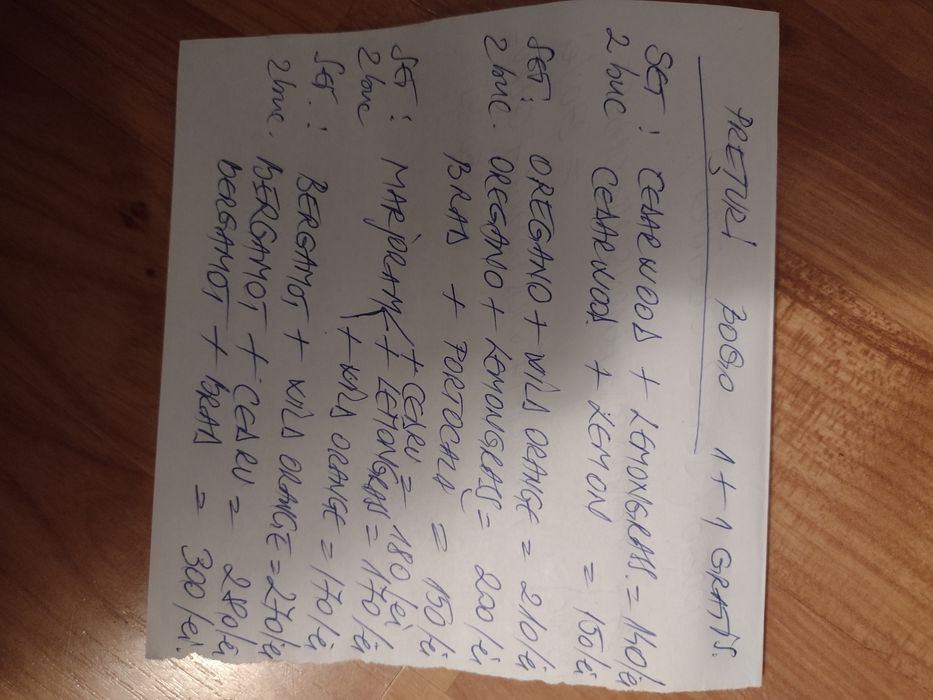 PREȚURI BOGO 1+1 GRATIS.
SET: CEDARWOOD + LEMONGRASS = 140 lei
2 buc CEDARWOOD + LEMON = 150 lei
SET: OREGANO + WILD ORANGE = 210 lei
2 buc. OREGANO + LEMONGRASS = 200 lei
BRAD + PORTOCALĂ = 150 lei
+ CEDRU = 180 lei
SET: MARJORAM + LEMONGRASS = 170 lei
2 buc + WILD ORANGE = 170 lei
SET: BERGAMOT + WILD ORANGE = 270 lei
2 buc. BERGAMOT + CEDRU = 280 lei
BERGAMOT + BRAD = 300 lei.